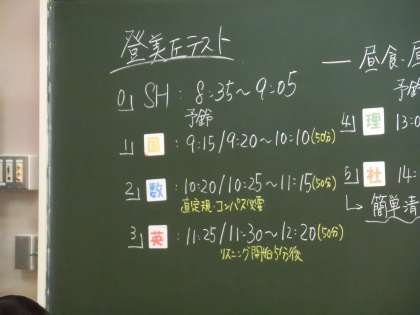 登美丘テスト
0」 SH : 8:35～9:05
予鈴
1」 国 : 9:15/9:20～10:10(50分)
2」 数 : 10:20/10:25～11:15(50分)
直定規・コンパス必要
3」 英 : 11:25/11:30～12:20(50分)
リスニング開始5分後
― 昼食・
予鈴
4」 理 13:0
5」 社 14:
↳ 簡単清